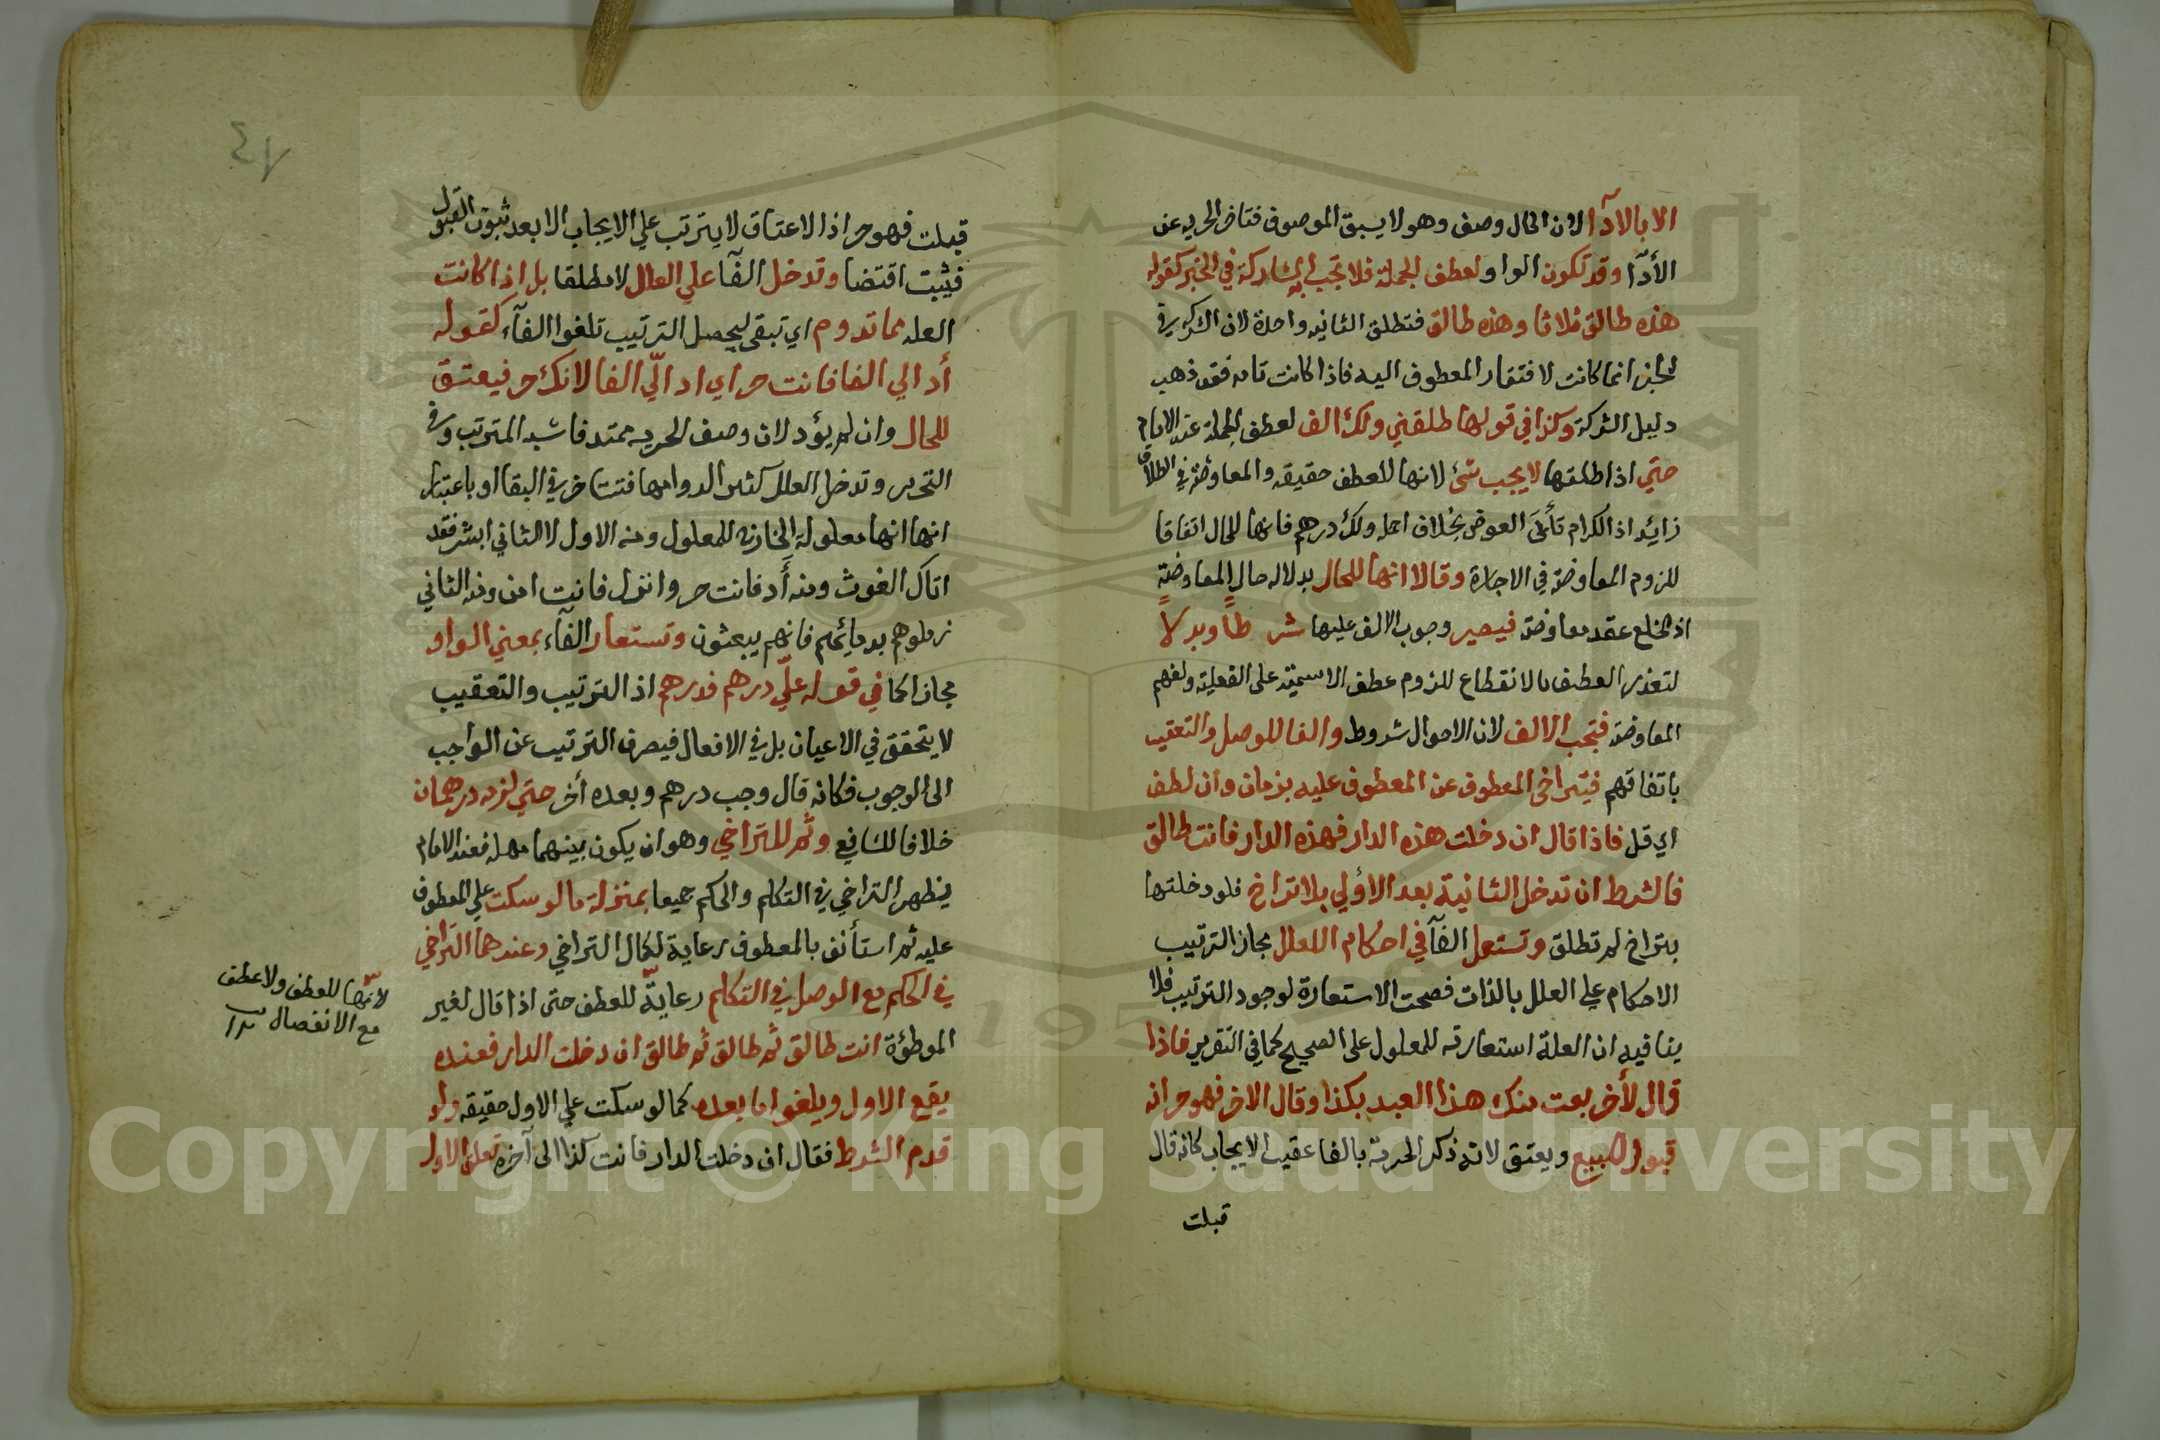 الا بالادآ لان الحال وصف وهو لا يسبق الموصوف فتاخر الحريه عن
الأدآ وقد تكون الواو لعطف الجملة فلا تجب به المشاركة في الخبر كقوله
هذه طالق ثلاثا وهذه طالق فتطلق الثانيه واحدة لان الشركه في
الخبر انما كانت لافتقار المعطوف اليه فاذا كانت تامه فقد ذهب
دليل الشركة وكذا في قولها طلقني ولك الف لعطف الجملة عند الامام
حتي اذا طلقها لا يجب شئ لانها للعطف حقيقه والمعاوضة في الطلاق
زايد اذ الكرام تأبى العوض بخلاف احمله ولك درهم فانها للحال اتفاقا
للزوم المعاوضة في الاجارة وقالا انها للحال بدلاله حال المعاوضة
اذ الخلع عقد معاوضة فيصير وجوب الالف عليها شرطاً وبدلاً
لتعذر العطف بالانقطاع للزوم عطف الاسمية على الفعلية ولفهم
المعاوضة فتجب الالف لان الاحوال شروط والفا للوصل والتعقيب
باتفاقهم فيتراخى المعطوف عن المعطوف عليه بزمان وان لطف
اي قل فاذا قال ان دخلت هذه الدار فهذه الدار فانت طالق
فالشرط ان تدخل الثانية بعد الأولي بلا تراخ فلو دخلتها
بتراخ لم تطلق وتستعمل الفآ في احكام العلل مجاز الترتيب
الاحكام على العلل بالذات فصحت الاستعارة لوجود الترتيب فلا
ينافيه ان العلة استعارته للمعلول على الصحيح كما في التقرير فاذا
قال لأخر بعت منك هذا العبد بكذا وقال الاخر فهو حر انه
قبول للبيع ويعتق لانه ذكر الحرية بالفا عقيب الايجاب كانه قال
قبلت
٤٧
قبلت فهو حر اذ الاعتاق لا يترتب على الايجاب الا بعد ثبوت القبول
فيثبت اقتضا وتدخل الفآ علي العلل لا مطلقا بل اذا كانت
العله مما تدوم اي تبقى ليحصل الترتيب تلغوا الفآء كقوله
أد الي الفا فانت حر اي اد اليّ الفا لانك حر فيعتق
للحال وان لم يؤد لان وصف الحريه ممتد فاشبه المترتب وفي
التحرير وتدخل العلل كثيرا لدوامها فتتاخر في البقا او باعتبار
انها انها معلولة الخارنه للمعلول ومنه الاول لا الثاني ابشر فقد
اتاك الغوث ومنه أد فانت حر وانزل فانت امن ومنه الثاني
زملوهم بدمائهم فانهم يبعثون وتستعار الفآء بمعني الواو
مجازا كما في قوله عليّ درهم فدرهم اذ الترتيب والتعقيب
لا يتحقق في الاعيان بل في الافعال فيصرف الترتيب عن الواجب
الى الوجوب فكانه قال وجب درهم وبعده أخر حتي لزمه درهمان
خلافا للشافعي وثم للتراخي وهو ان يكون بينهما مهلة فعند الامام
يظهر التراخي في التكلم والحكم جميعا بمنزلة ما لو سكت علي المعطوف
عليه ثم استأنف بالمعطوف رعاية لكمال التراخي وعندهما التراخي
في الحكم مع الوصل في التكلم رعايةً للعطف حتى اذا قال لغير
الموطؤة انت طالق ثم طالق ثم طالق ان دخلت الدار فعنده
يقع الاول ويلغوا ما بعده كما لو سكت علي الاول حقيقه ولو
قدم الشرط فقال ان دخلت الدار فانت كذا الى آخره تعلق الاول
لانها للعطف ولا عطف
مع الانفصال
Copyright © King Saud University
1957